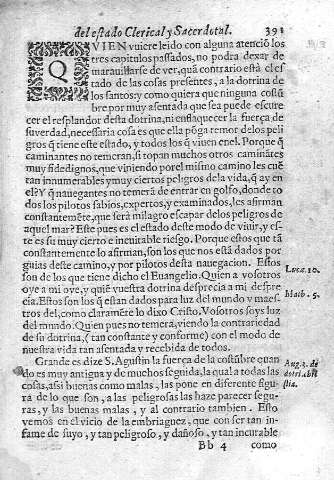 del estado Clerical, y Sacerdotal. 391
QVIEN vuiere leido con alguna atenció los
tres capitulos passados, no podra dexar de
marauillarse de ver, quã contrario està el es
tado de las cosas presentes, a la dotrina de
los santos: y como quiera que ninguna costũ
bre por muy asentada que sea puede escure
cer el resplandor desta dotrina, ni enflaquecer la fuerça de
su verdad, necessaria cosa es que ella põga temor de los peli
gros q̃ tiene este estado, y todos los q̃ viuen enel. Porque q̃
caminantes no temeran, si topan muchos otros caminãtes
muy fidedignos, que viniendo por el mismo camino les cuẽ
tan innumerables y muy ciertos peligros de la vida, q̃ ay en
el? Y q̃ nauegantes no temerã de entrar en golfo, donde to
dos los pilotos sabios, expertos, y examinados, les afirman
constantemẽte, que serà milagro escapar de los peligros de
aquel mar? Este pues es el estado deste modo de viuir, y es-
te es su muy cierto e ineuitable riesgo. Porque estos que tã
constantemente lo afirman, son los que nos està dados por
guias deste camino, y por pilotos desta nauegacion. Estos
son de los que tiene dicho el Euangelio. Quien a vosotros
oye a mi oye, y quiẽ vuestra dotrina desprecia a mi despre
cia. Estos son los q̃ estan dados para luz del mundo y maes
tros del, como claramẽte lo dixo Cristo. Vosotros soys luz
del mundo. Quien pues no temera, viendo la contrariedad
de su dotrina, (tan constante y conforme) con el modo de
nuestra vida tan asentada y recebida de todos.
Grande es dize S. Agustin la fuerça de la costũbre quan
do es muy antigua y de muchos seguida, la qual a todas las
cosas, assi buenas como malas, les pone en diferente figu-
ra de lo que son, a las peligrosas las haze parecer segu-
ras, y las buenas malas, y al contrario tambien. Esto
vemos en el vicio de la embriaguez, que con ser tan in-
fame de suyo, y tan peligroso, y dañoso, y tan incurable
Bb 4 como
Lucæ. 10.
Math. 5.
Aug. 3. de